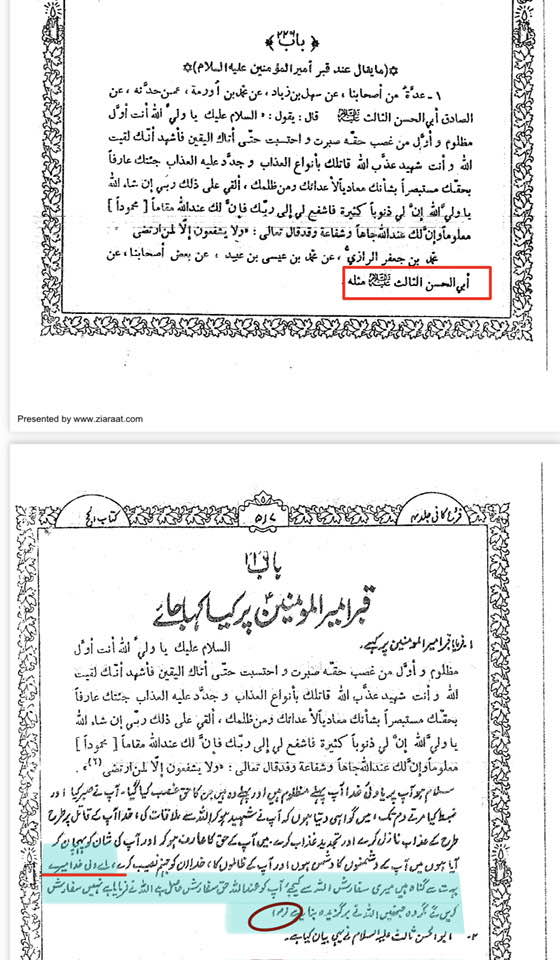 ﴿ باب ٢٢٦ ﴾
✡(ما يقال عند قبر أمير المؤمنين عليه السلام)✡
١ - عدَّةٌ من أصحابنا، عن سهل بن زياد، عن محمد بن أورمة، عمن حدَّثه، عن
الصادق أبي الحسن الثالث عليه السلام قال: يقول: « السلام عليك يا وليَّ الله أنت أوَّل
مظلوم و أوَّل من غصب حقّه صبرت و احتسبت حتّى أتاك اليقين فأشهد أنّك لقيت
الله و أنت شهيد عذَّب الله قاتلك بأنواع العذاب و جدَّد عليه العذاب جئتك عارفاً
بحقّك مستبصراً بشأنك معادياً لأعدائك ومن ظلمك، ألقي على ذلك ربّي إن شاء الله
يا وليَّ الله إنَّ لي ذنوباً كثيرة فاشفع لي إلى ربّك فإنَّ لك عند الله مقاماً [ محموداً ]
معلوماً وإنَّ لك عند الله جاهاً وشفاعة وقد قال تعالى: « ولا يشفعون إلّا لمن ارتضى
محمّد بن جعفر الرازيُّ، عن محمد بن عيسى بن عبيد، عن بعض أصحابنا، عن
أبي الحسن الثالث عليه السلام مثله
Presented by www.ziaraat.com
فروع کافی جلد ۴
۵۱۷
کتاب الحج
باب
قبر امیر المومنین پر کیا کہا جائے
۱۔ فرمایا قبر امیر المومنین پر کہے۔ السلام عليك يا وليَّ الله أنت أوَّل
مظلوم و أوَّل من غصب حقّه صبرت و احتسبت حتّى أتاك اليقين فأشهد أنّك لقيت
الله و أنت شهيد عذَّب الله قاتلك بأنواع العذاب و جدَّد عليه العذاب جئتك عارفاً
بحقّك مستبصراً بشأنك معادياً لأعدائك ومن ظلمك، ألقي على ذلك ربّي إن شاء الله
يا وليَّ الله إنَّ لي ذنوباً كثيرة فاشفع لي إلى ربّك فإنَّ لك عند الله مقاماً [ محموداً ]
معلوماً وإنَّ لك عند الله جاهاً وشفاعة وقد قال تعالى: « ولا يشفعون إلّا لمن ارتضى (٦)».
سلام ہو آپ پر یا ولی خدا آپ پہلے مظلوم ہیں اور پہلے وہ ہیں جن کا حق غصب کیا گیا۔ آپ نے صبر کیا اور
ضبط کیا مرتے دم تک، میں گواہی دیتا ہوں کہ آپ نے شہید ہو کر اللہ سے ملاقات کی، خدا آپ کے قاتل پر طرح
طرح کے عذاب نازل کرے اور تجدید عذاب کرے، میں آپ کے حق کا عارف ہو کر اور آپ کی شان کو پہچان کر
آیا ہوں میں آپ کے دشمنوں کا دشمن ہوں اور آپ کے ظالموں کا، خدا ان کو جہنم نصیب کرے، اے ولی خدا میرے
بہت سے گناہ ہیں میری سفارش اللہ سے کیجئے آپ کو عند اللہ حق سفارش حاصل ہے اللہ نے فرمایا ہے نہیں سفارش
کریں گے مگر وہ جنہیں اللہ نے برگزیدہ بنایا ہے
۲۔ ابو الحسن ثالث علیہ السلام نے یہی بیان کیا ہے۔